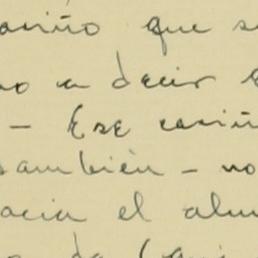 cariño que s
o a decir s
- Ese cariñ
también - no
acia el alm